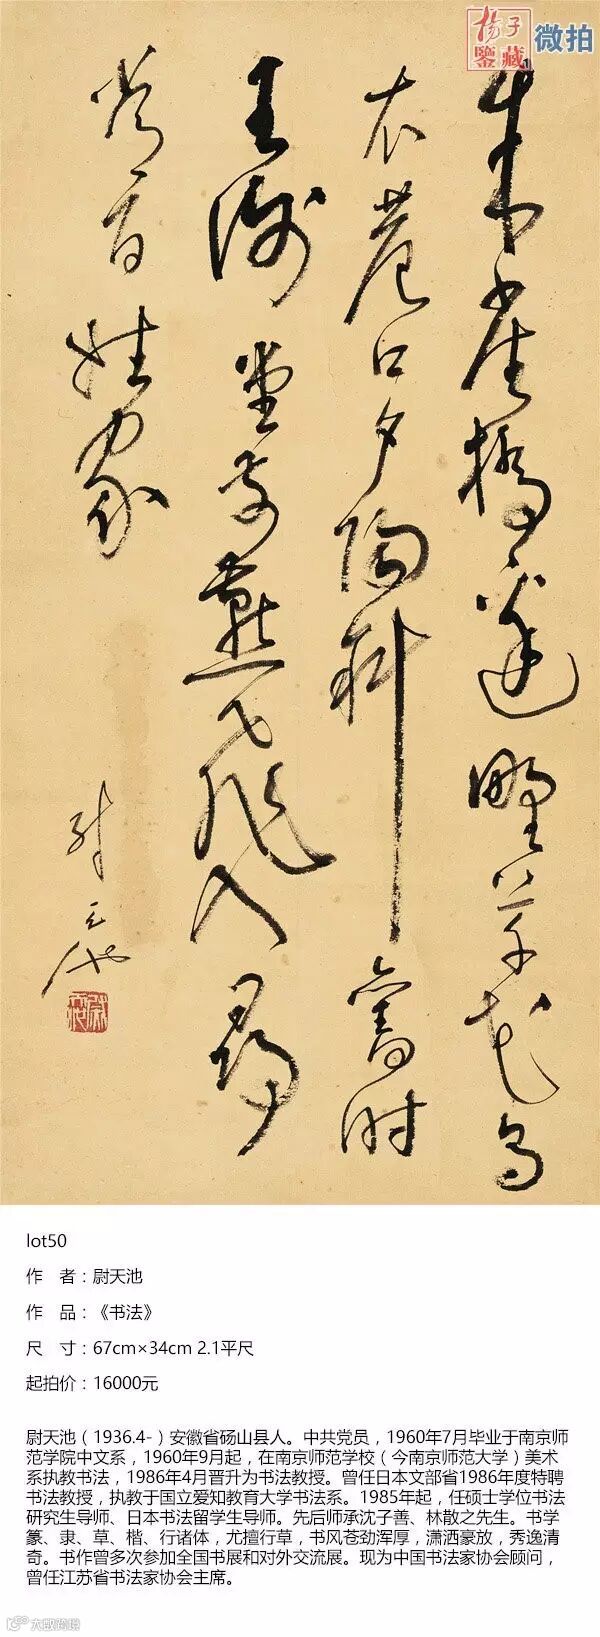 杨子
鉴藏
微拍
朱雀橋邊野草花烏
衣巷口夕陽斜舊時
王謝堂前燕飛入尋
常百姓家
尉天池
lot50
作 者：尉天池
作 品：《书法》
尺 寸：67cm×34cm 2.1平尺
起拍价：16000元
尉天池（1936.4-）安徽省砀山县人。中共党员，1960年7月毕业于南京师
范学院中文系，1960年9月起，在南京师范学校（今南京师范大学）美术
系执教书法，1986年4月晋升为书法教授。曾任日本文部省1986年度特聘
书法教授，执教于国立爱知教育大学书法系。1985年起，任硕士学位书法
研究生导师、日本书法留学生导师。先后师承沈子善、林散之先生。书学
篆、隶、草、楷、行诸体，尤擅行草，书风苍劲浑厚，潇洒豪放，秀逸清
奇。书作曾多次参加全国书展和对外交流展。现为中国书法家协会顾问，
曾任江苏省书法家协会主席。
大欧跨境